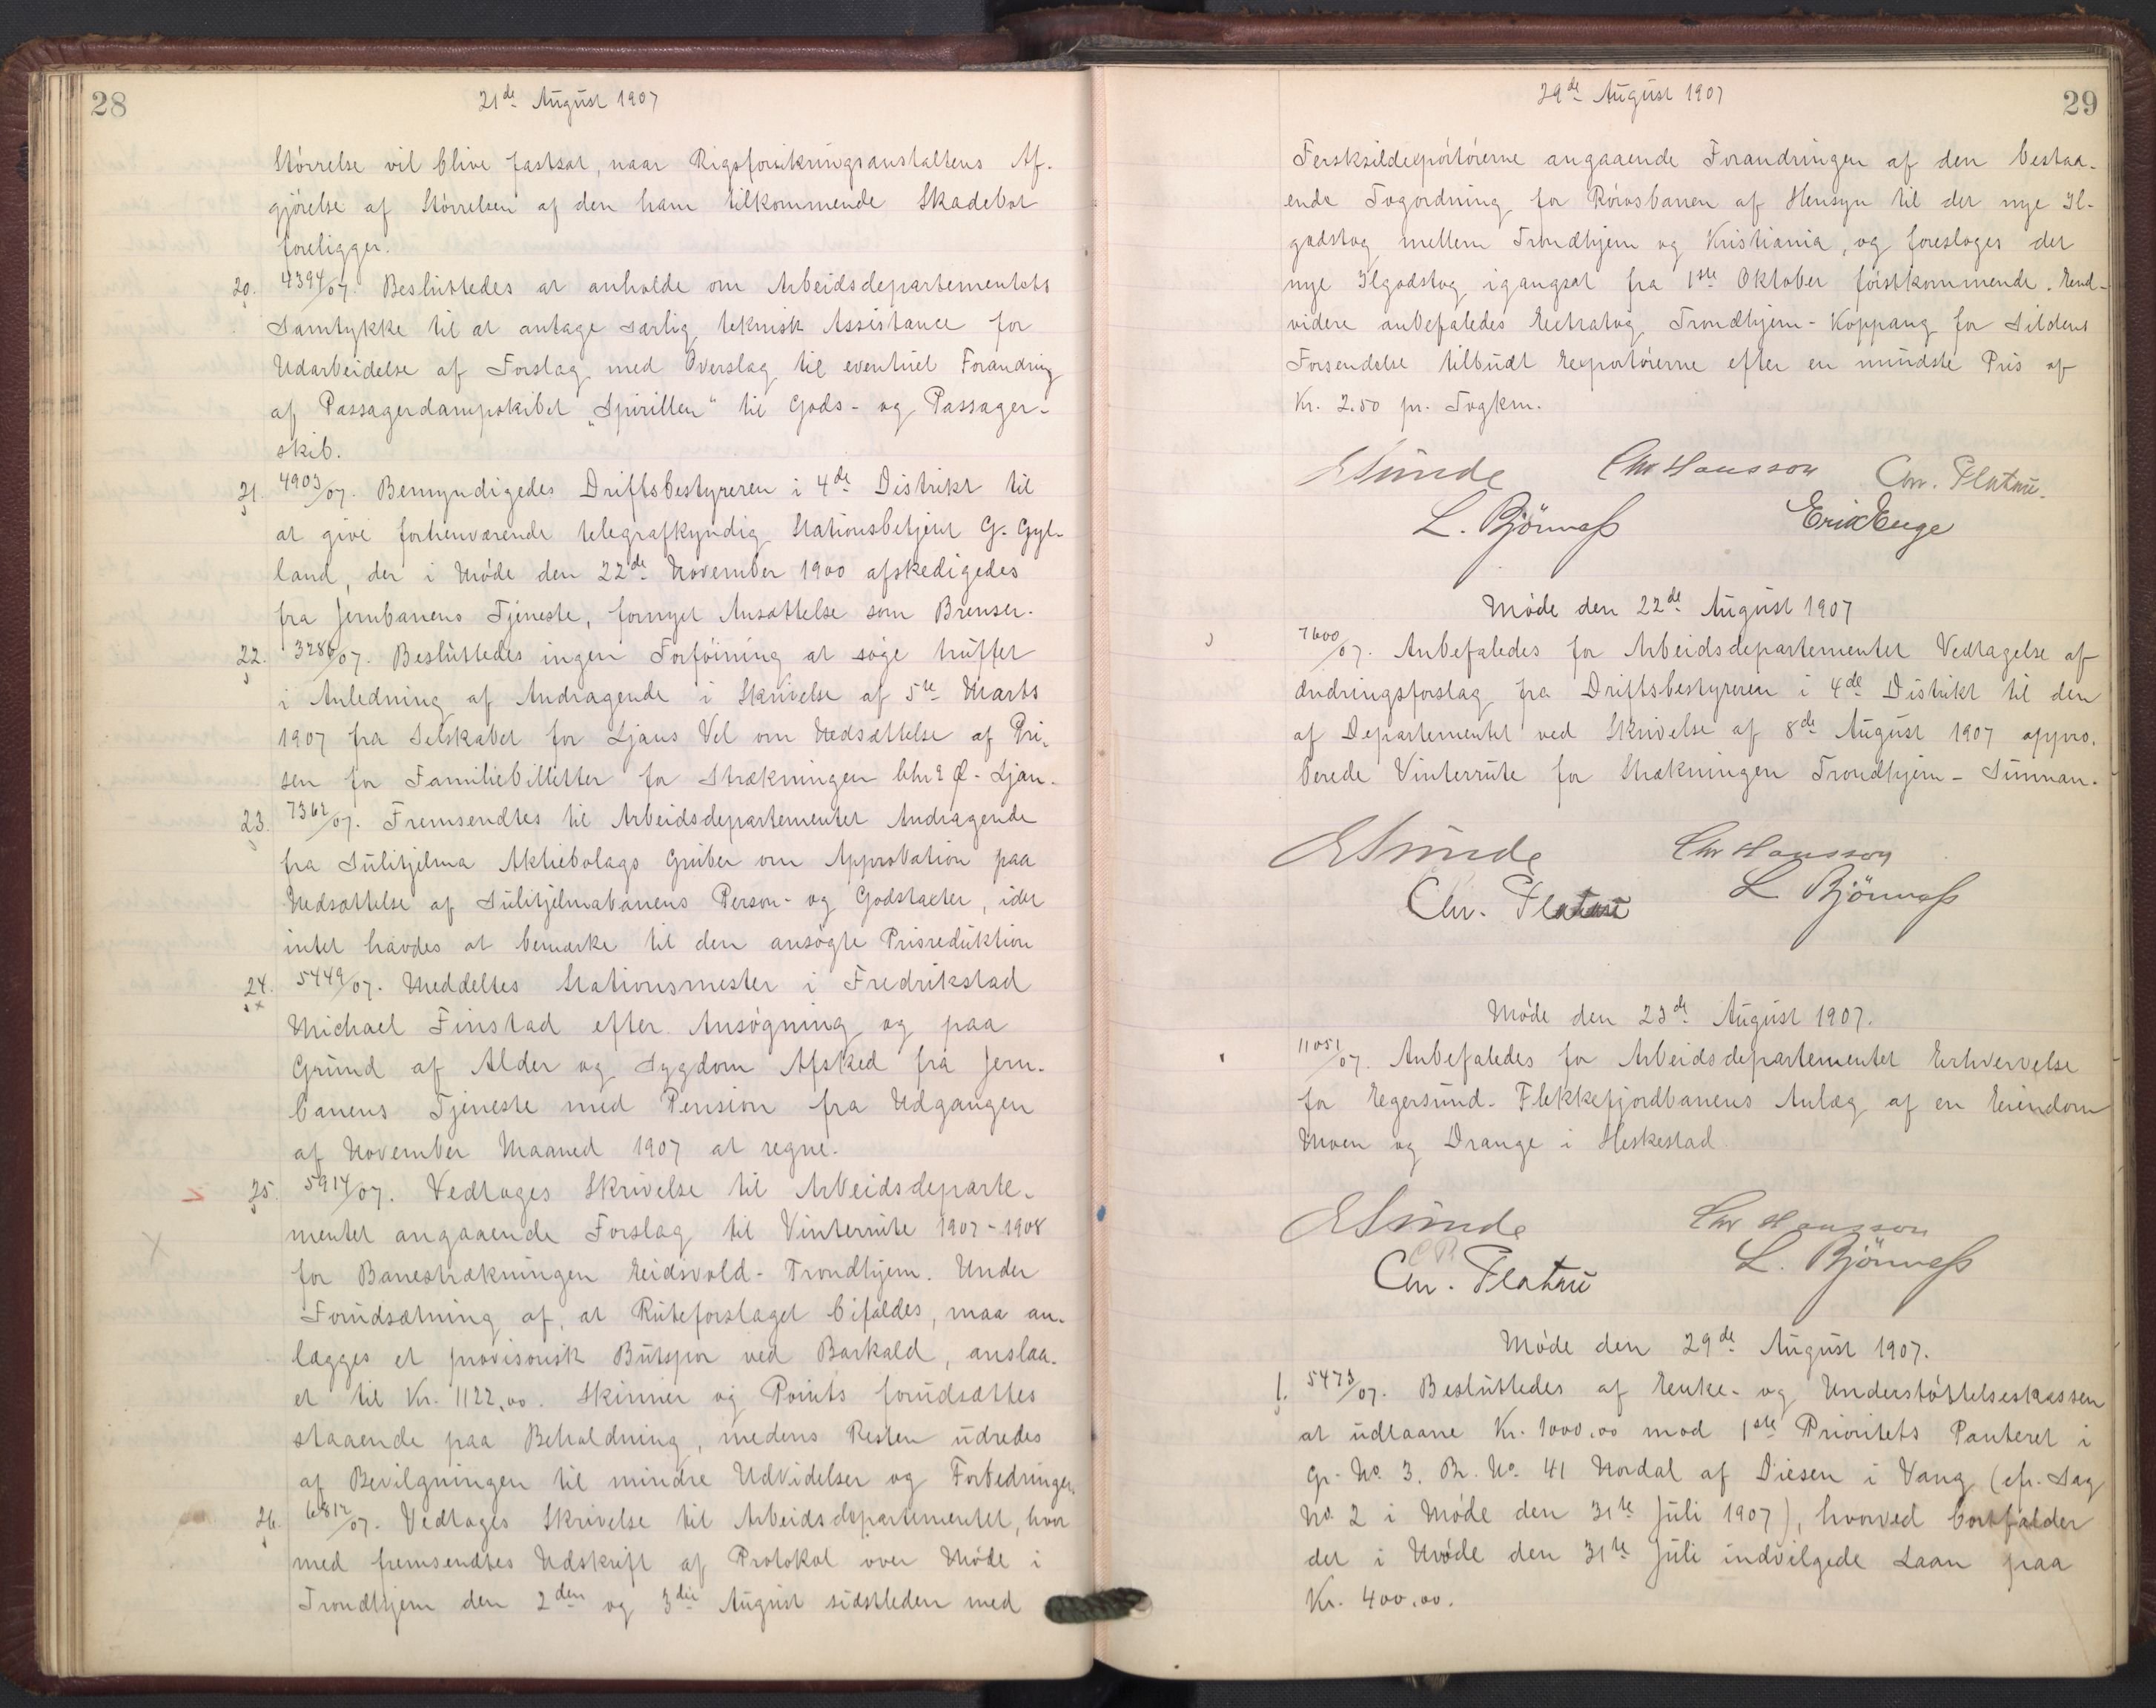 28
21de August 1907
Størrelse vil blive fastsat, naar Rigsforsikringsanstaltens Af-
gjørelse af Størrelsen af den ham tilkommende Skadebot
foreligger.
20. 4394/07. Besluttedes at anholde om Arbeidsdepartementets
Samtykke til at antage særlig teknisk Assistance for
Udarbeidelse af Forslag med Overslag til eventuel Forandring
af Passagerdampskibet "Spirillen" til Gods- og Passager-
skib.
21. 4903/07. Bemyndigedes Driftsbestyreren i 4de Distrikt til
at give forhenværende telegrafkyndig Stationsbetjent G. Gyl-
land, der i Møde den 22de November 1900 afskedigedes
fra Jernbanens Tjeneste, fornyet Ansættelse som Bremser.
22. 3286/07. Besluttedes ingen Forføining at søge truffet
i Anledning af Andragende i Skrivelse af 5te Marts
1907 fra Selskabet for Ljans Vel om Nedsættelse af Pri-
sen for Familiebilletter for Strækningen Ø - Ljan.
23. 7362/07. Fremsendtes til Arbeidsdepartementet Andragende
fra Sulitjelma Aktiebolags Gruber om Approbation paa
Nedsættelse af Sulitjelmabanens Person- og Godstaxter, idet
intet havdes at bemærke til den ansøgte Prisreduktion
24. 5449/07. Meddeltes Stationsmester i Fredrikstad
Michael Finstad efter Ansøgning og paa
Grund af Alder og Sygdom Afsked fra Jern-
banens Tjeneste med Pension fra Udgangen
af November Maaned 1907 at regne.
25. 5914/07. Vedtoges Skrivelse til Arbeidsdeparte-
mentet angaaende Forslag til Vinterrute 1907-1908
for Banestrækningen Eidsvold - Trondhjem. Under
Forudsætning af, at Ruteforslaget bifaldes, maa an-
lægges et provisorisk Butspor ved Barkald, anslaa-
et til Kr. 1122,00. Skinner og Points forudsættes
staaende paa Beholdning, medens Resten udredes
af Bevilgningen til mindre Udvidelser og Forbedringer.
26. 6812/07. Vedtoges Skrivelse til Arbeidsdepartementet, hvor
med fremsendtes Udskrift af Protokol over Møde i
Trondhjem den 2den og 3die August sidstleden med
29de August 1907
29
Fersksildexportørerne angaaende Forandringen af den bestaa-
ende Togordning for Rørosbanen af Hensyn til det nye Il-
godstog mellem Trondhjem og Kristiania, og foresloges det
nye Ilgodstog igangsat fra 1ste Oktober førstkommende. End-
videre anbefaledes Extratog Trondhjem - Koppang for Sildens
Forsendelse tilbudt Exportørerne efter en mindste Pris af
Kr. 2.50 pr. Togkm.
ESunde Chr Hansson Chr. Platou.
L. Bjørnness Erik Enge
Møde den 22de August 1907
7600/07. Anbefaledes for Arbeidsdepartementet Vedtagelse af
Ændringsforslag fra Driftsbestyreren i 4de Distrikt til den
af Departementet ved Skrivelse af 8de August 1907 appro-
berede Vinterrute for Strækningen Trondhjem - Sunnan.
ESunde Chr Hansson
Chr. Platou L Bjørnness
Møde den 23de August 1907.
11051/07. Anbefaledes for Arbeidsdepartementet Erhvervelse
for Egersund - Flekkefjordbanens Anlæg af en Eiendom
Moen og Drange i Heskestad
ESunde Chr Hansson
Chr. Platou L. Bjørnness
Møde den 29de August 1907.
1. 5473/07. Besluttedes af Enke- og Understøttelseskassen
at udlaane Kr. 1000.00 mod 1ste Prioritets Panteret i
Gr. No. 3. Br. No. 41 Nordal af Diesen i Vang (cfr. Sag
No. 2 i Møde den 31te Juli 1907), hvorved bortfalder
det i Møde den 31te Juli indvilgede Laan paa
Kr. 400.00.